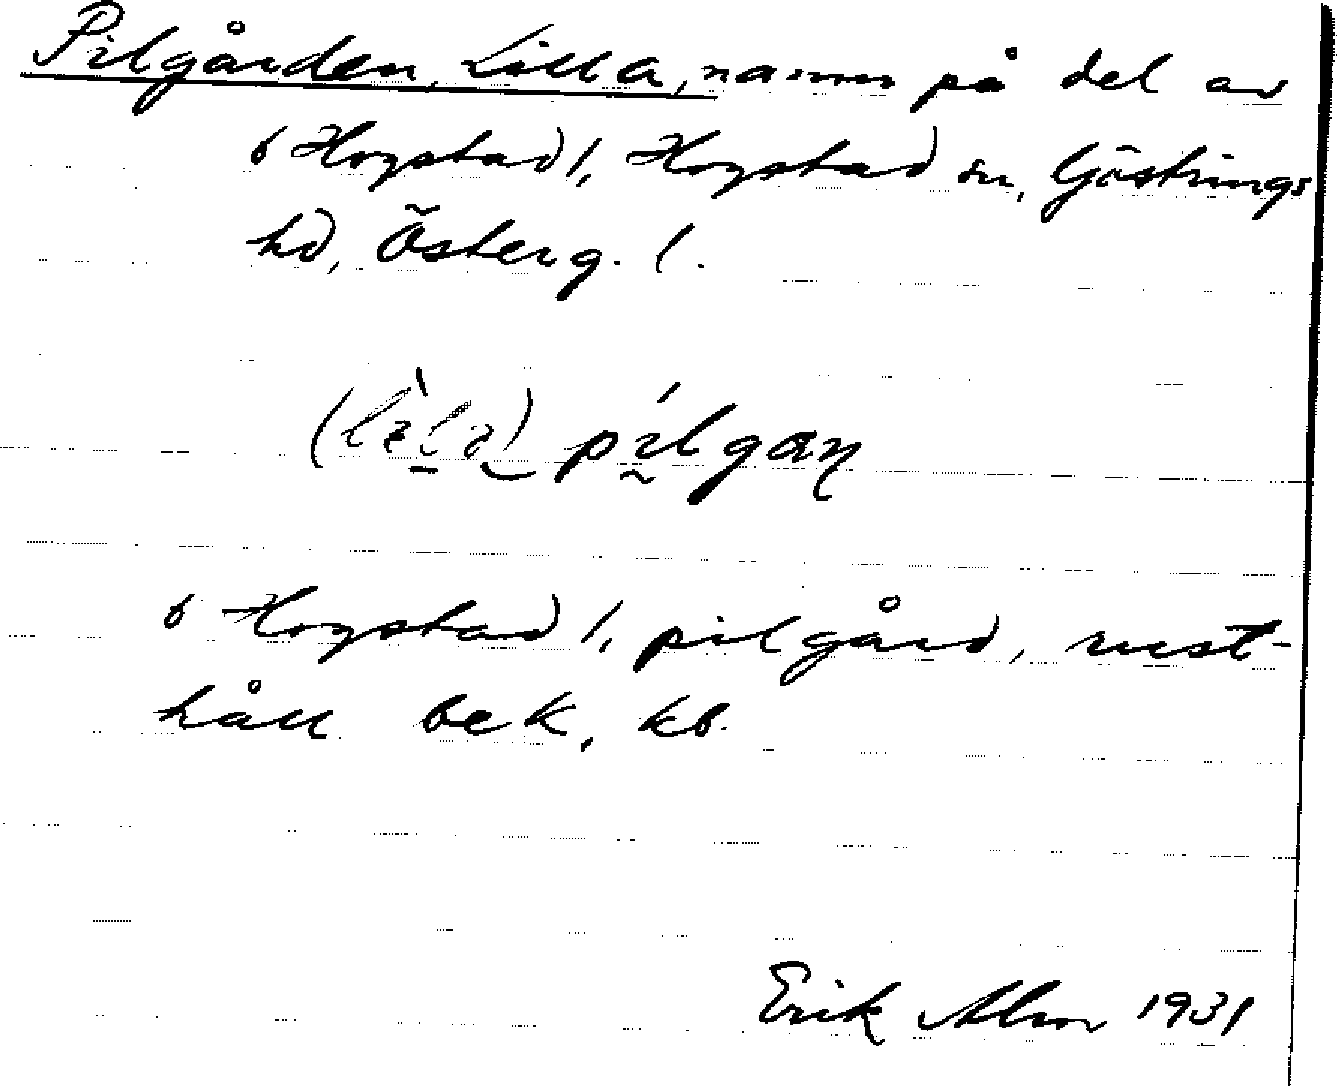 Pilgården, Lilla, namn på del av
6 Hogstad 1, Hogstad sn, Göstrings
hd, Österg. l.
pilgaɳ
6 Hogstad 1, pilgård, rust-
håll bek, kb.
Erik Alm 1931